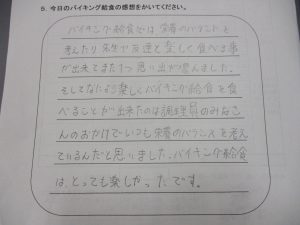 5. 今日のバイキング給食の感想をかいてください。
バイキング給食では、栄養のバランスを
考えたり先生や友達と楽しく食べる事
が出来てまた1つ思い出が増えました。
そしてなにより楽しくバイキング給食を食
べることが出来たのは調理員のみなさ
んのおかげでいつも栄養のバランスを考え
ているんだと思いました。バイキング給食
は、とっても楽しかったです。